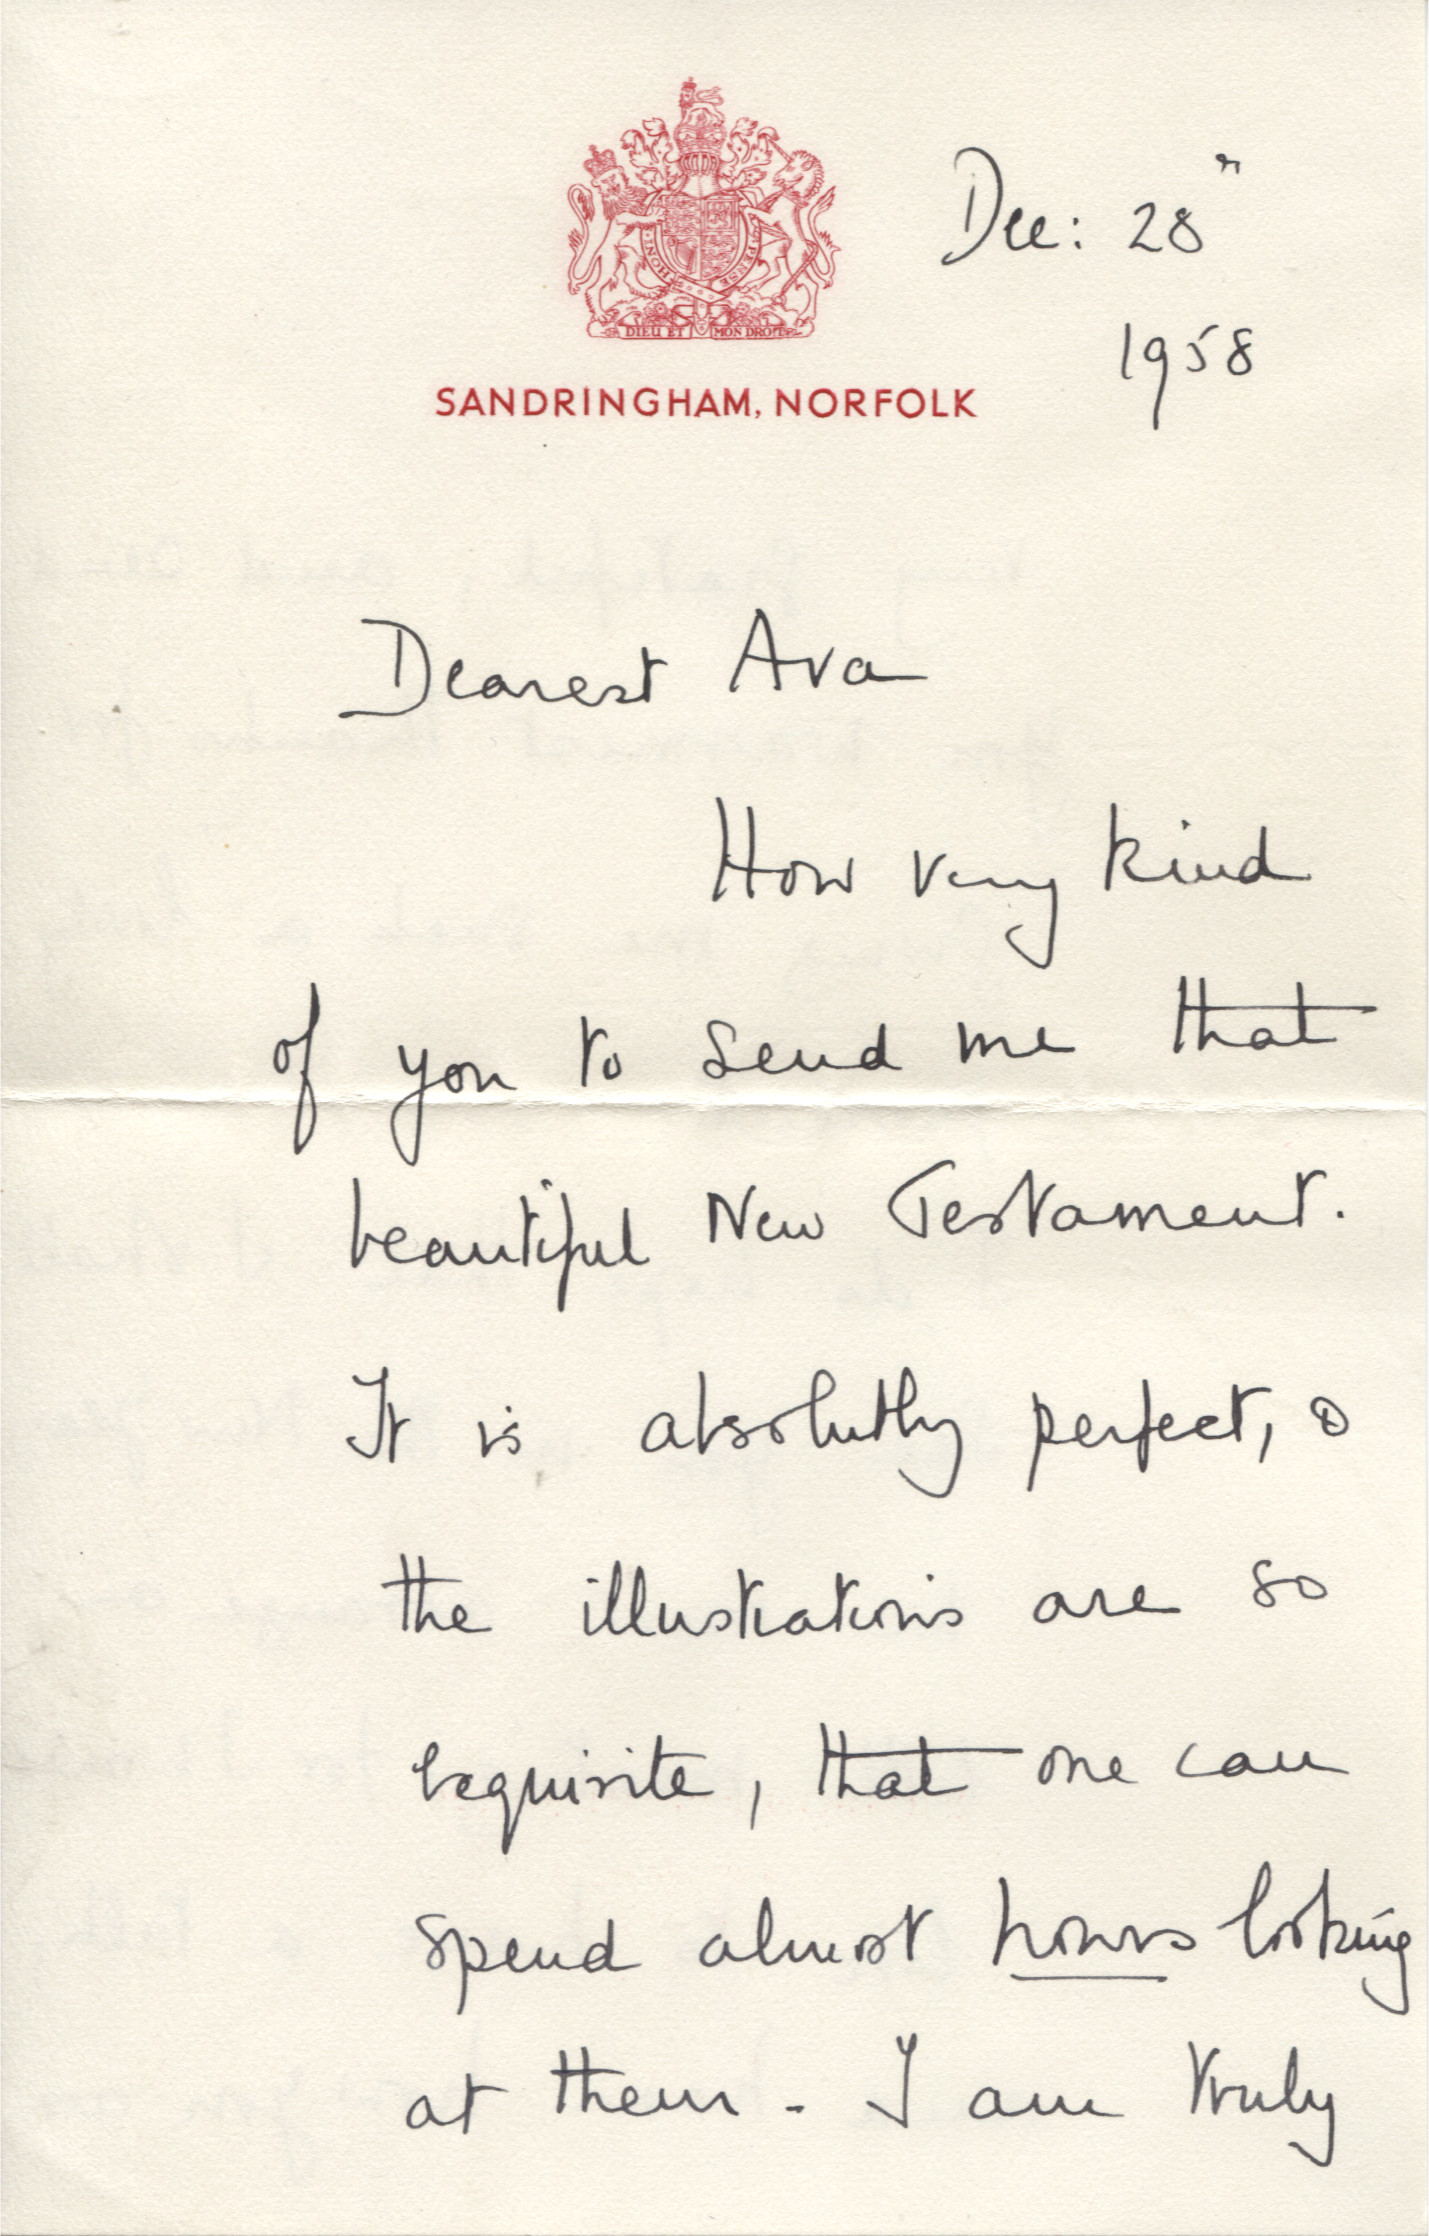 Dec: 28th
1958
HONI
PENSE
DIEU ET MON DROIT
SANDRINGHAM, NORFOLK
Dearest Ava
How very kind
of you to send me that
beautiful New Testament.
It is absolutly perfect, &
the illustrations are so
exquisite, that one can
spend almost hours looking
at them - I am truly